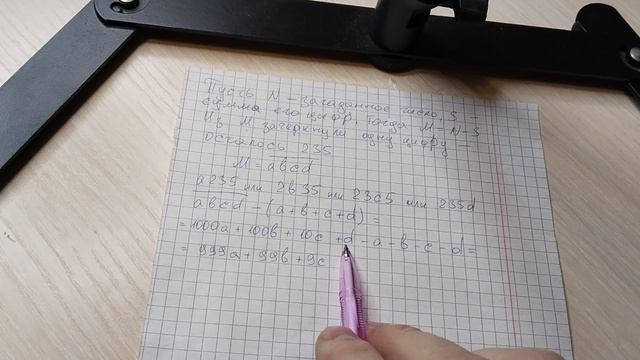 Пусть N – загаданное число, S –
сумма его цифр, тогда M = N – S
Из M зачеркнули одну цифру –
осталось 235
M = abcd
a235 или 2b35 или 23c5 или 235d
abcd – (a + b + c + d) =
= 1000a + 100b + 10c + d – a – b – c – d =
= 999a + 99b + 9c